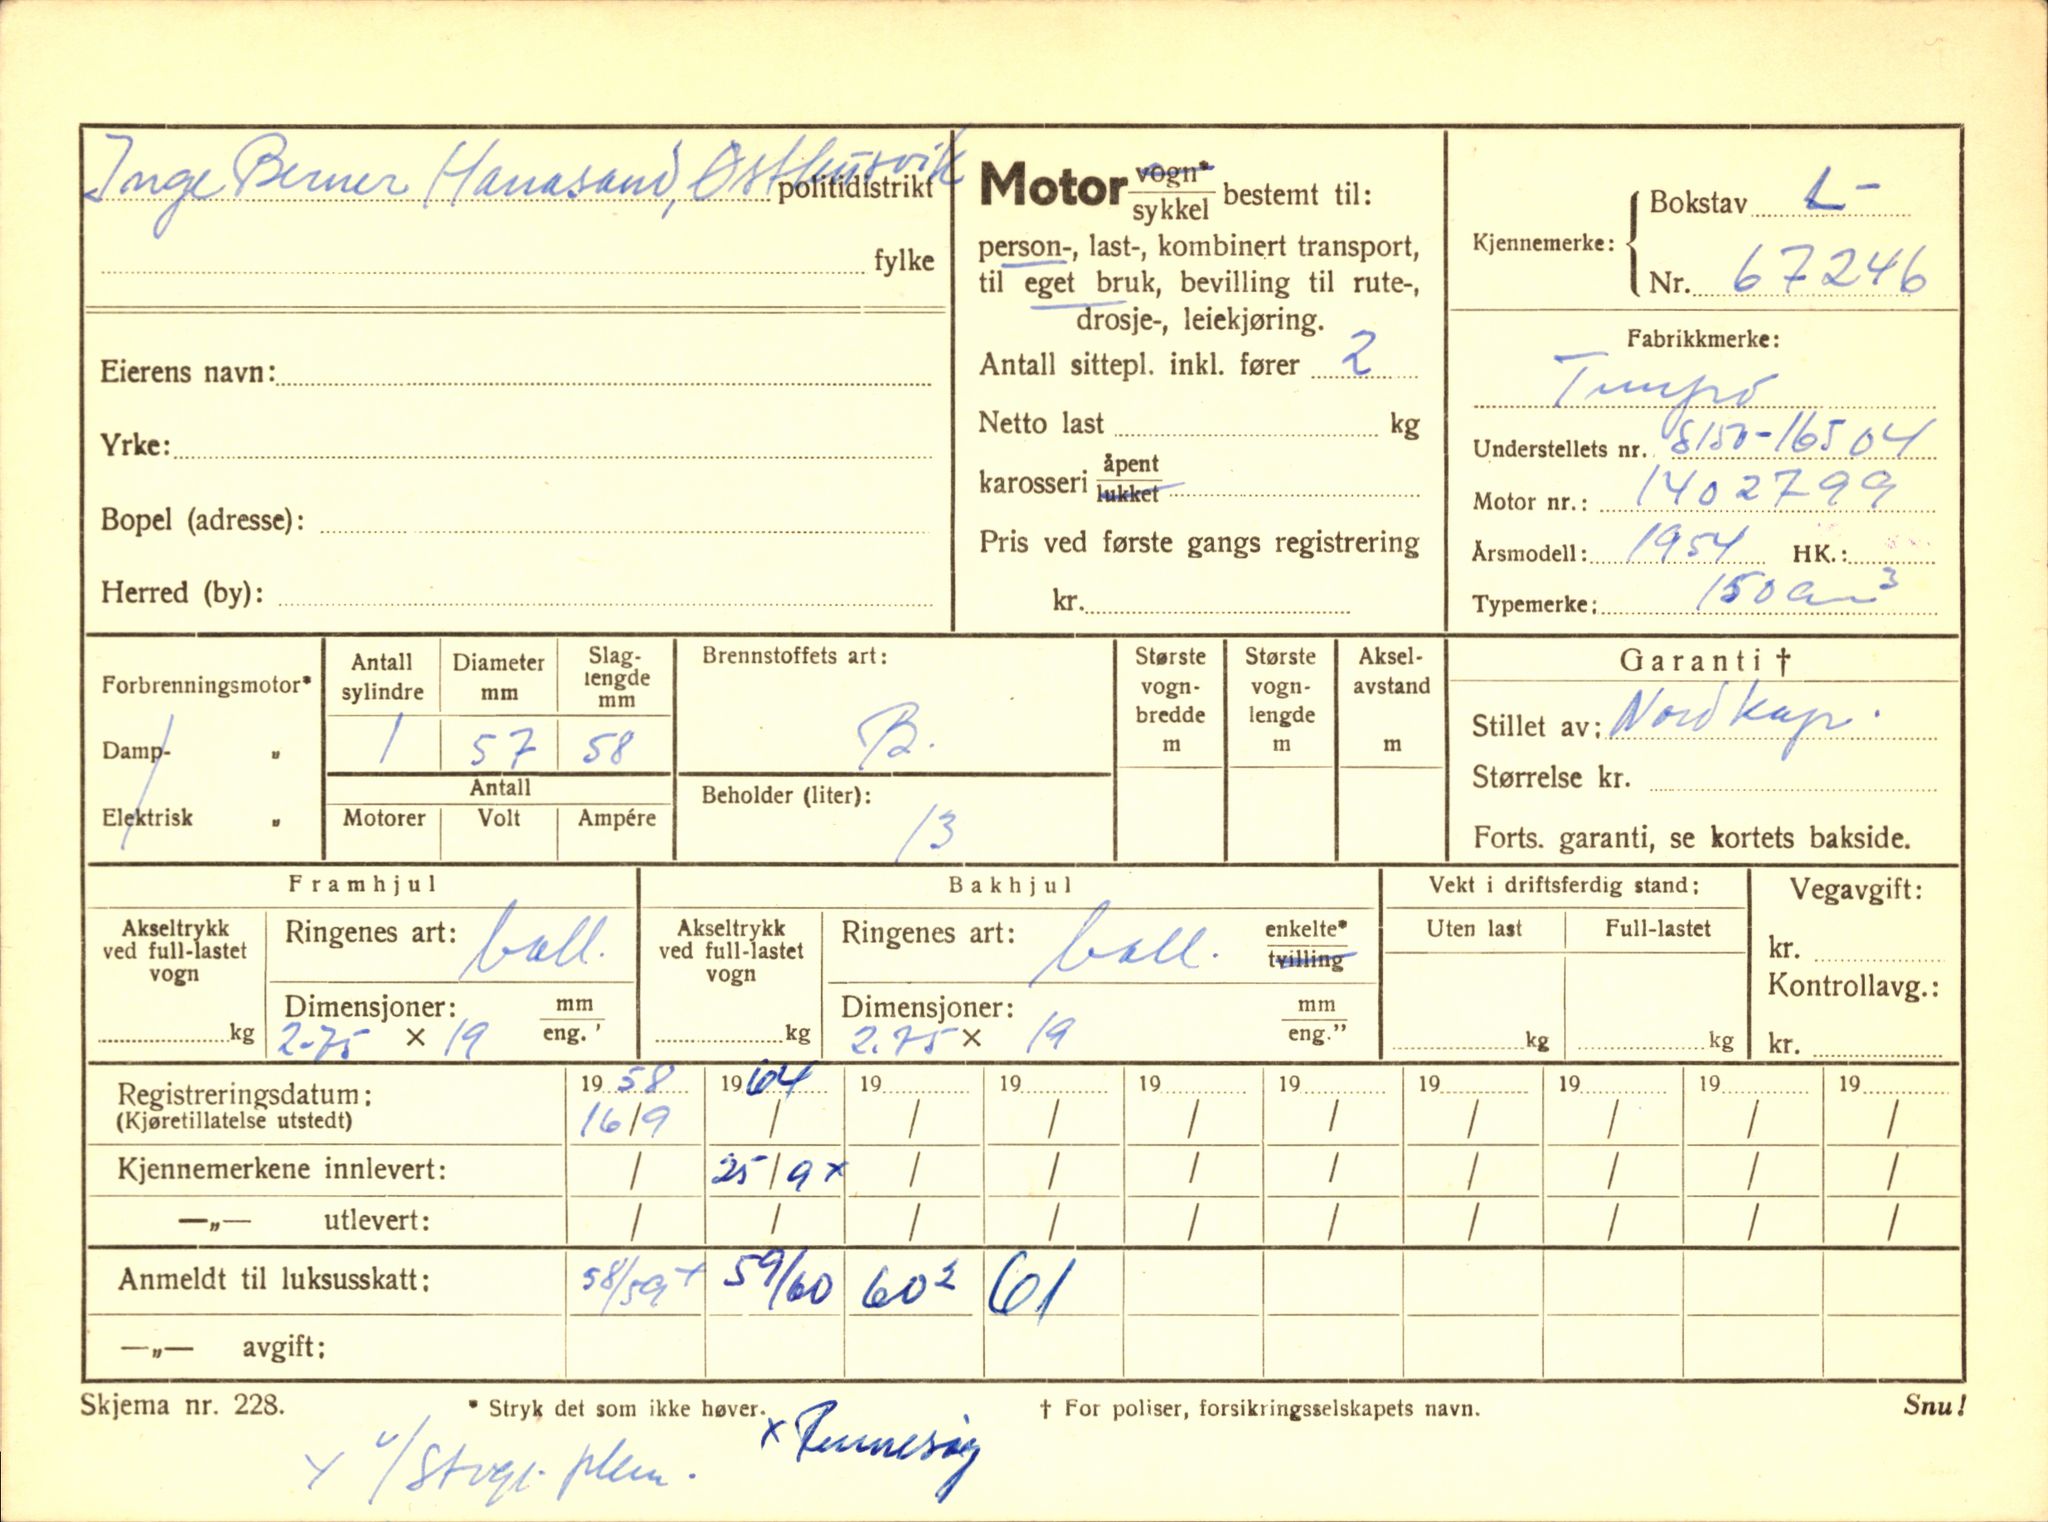 Inge Berner Hanasand, Østhusvik
politidistrikt
fylke
Eierens navn:
Yrke:
Bopel (adresse):
Herred (by):
Motor vogn* sykkel bestemt til:
person-, last-, kombinert transport,
til eget bruk, bevilling til rute-,
drosje-, leiekjøring.
Antall sittepl. inkl. fører 2
Netto last kg
karosseri åpent lukket
Pris ved første gangs registrering
kr.
Kjennemerke:
Bokstav L-
Nr. 67246
Fabrikkmerke:
Tempo
Understellets nr. 8150-16504
Motor nr.: 1402799
Årsmodell: 1954 HK.:
Typemerke: 150 cm3
Forbrenningsmotor*
Damp- „
Elektrisk „
Antall sylindre
Diameter mm
Slag- lengde mm
1 57 58
Antall
Motorer Volt Ampére
Brennstoffets art:
B.
Beholder (liter):
13
Største vogn- bredde m
Største vogn- lengde m
Aksel- avstand m
Garanti †
Stillet av: Nordkap.
Størrelse kr.
Forts. garanti, se kortets bakside.
Framhjul
Akseltrykk ved full-lastet vogn
kg
Ringenes art: ball.
Dimensjoner: mm eng.'
2.75 × 19
Bakhjul
Akseltrykk ved full-lastet vogn
kg
Ringenes art: ball. enkelte* tvilling
Dimensjoner: mm eng."
2.75 × 19
Vekt i driftsferdig stand:
Uten last Full-lastet
kg kg
Vegavgift:
kr.
Kontrollavg.:
kr.
Registreringsdatum: 1958 1964 19 19 19 19 19 19 19 19
(Kjøretillatelse utstedt) 16/9 / / / / / / / / /
Kjennemerkene innlevert: / 25/9 x / / / / / / / /
—„— utlevert: / / / / / / / / / /
Anmeldt til luksusskatt: 58/59+ 59/60 60² 61
—„— avgift:
Skjema nr. 228. * Stryk det som ikke høver. † For poliser, forsikringsselskapets navn. Snu!
x Rennesøy